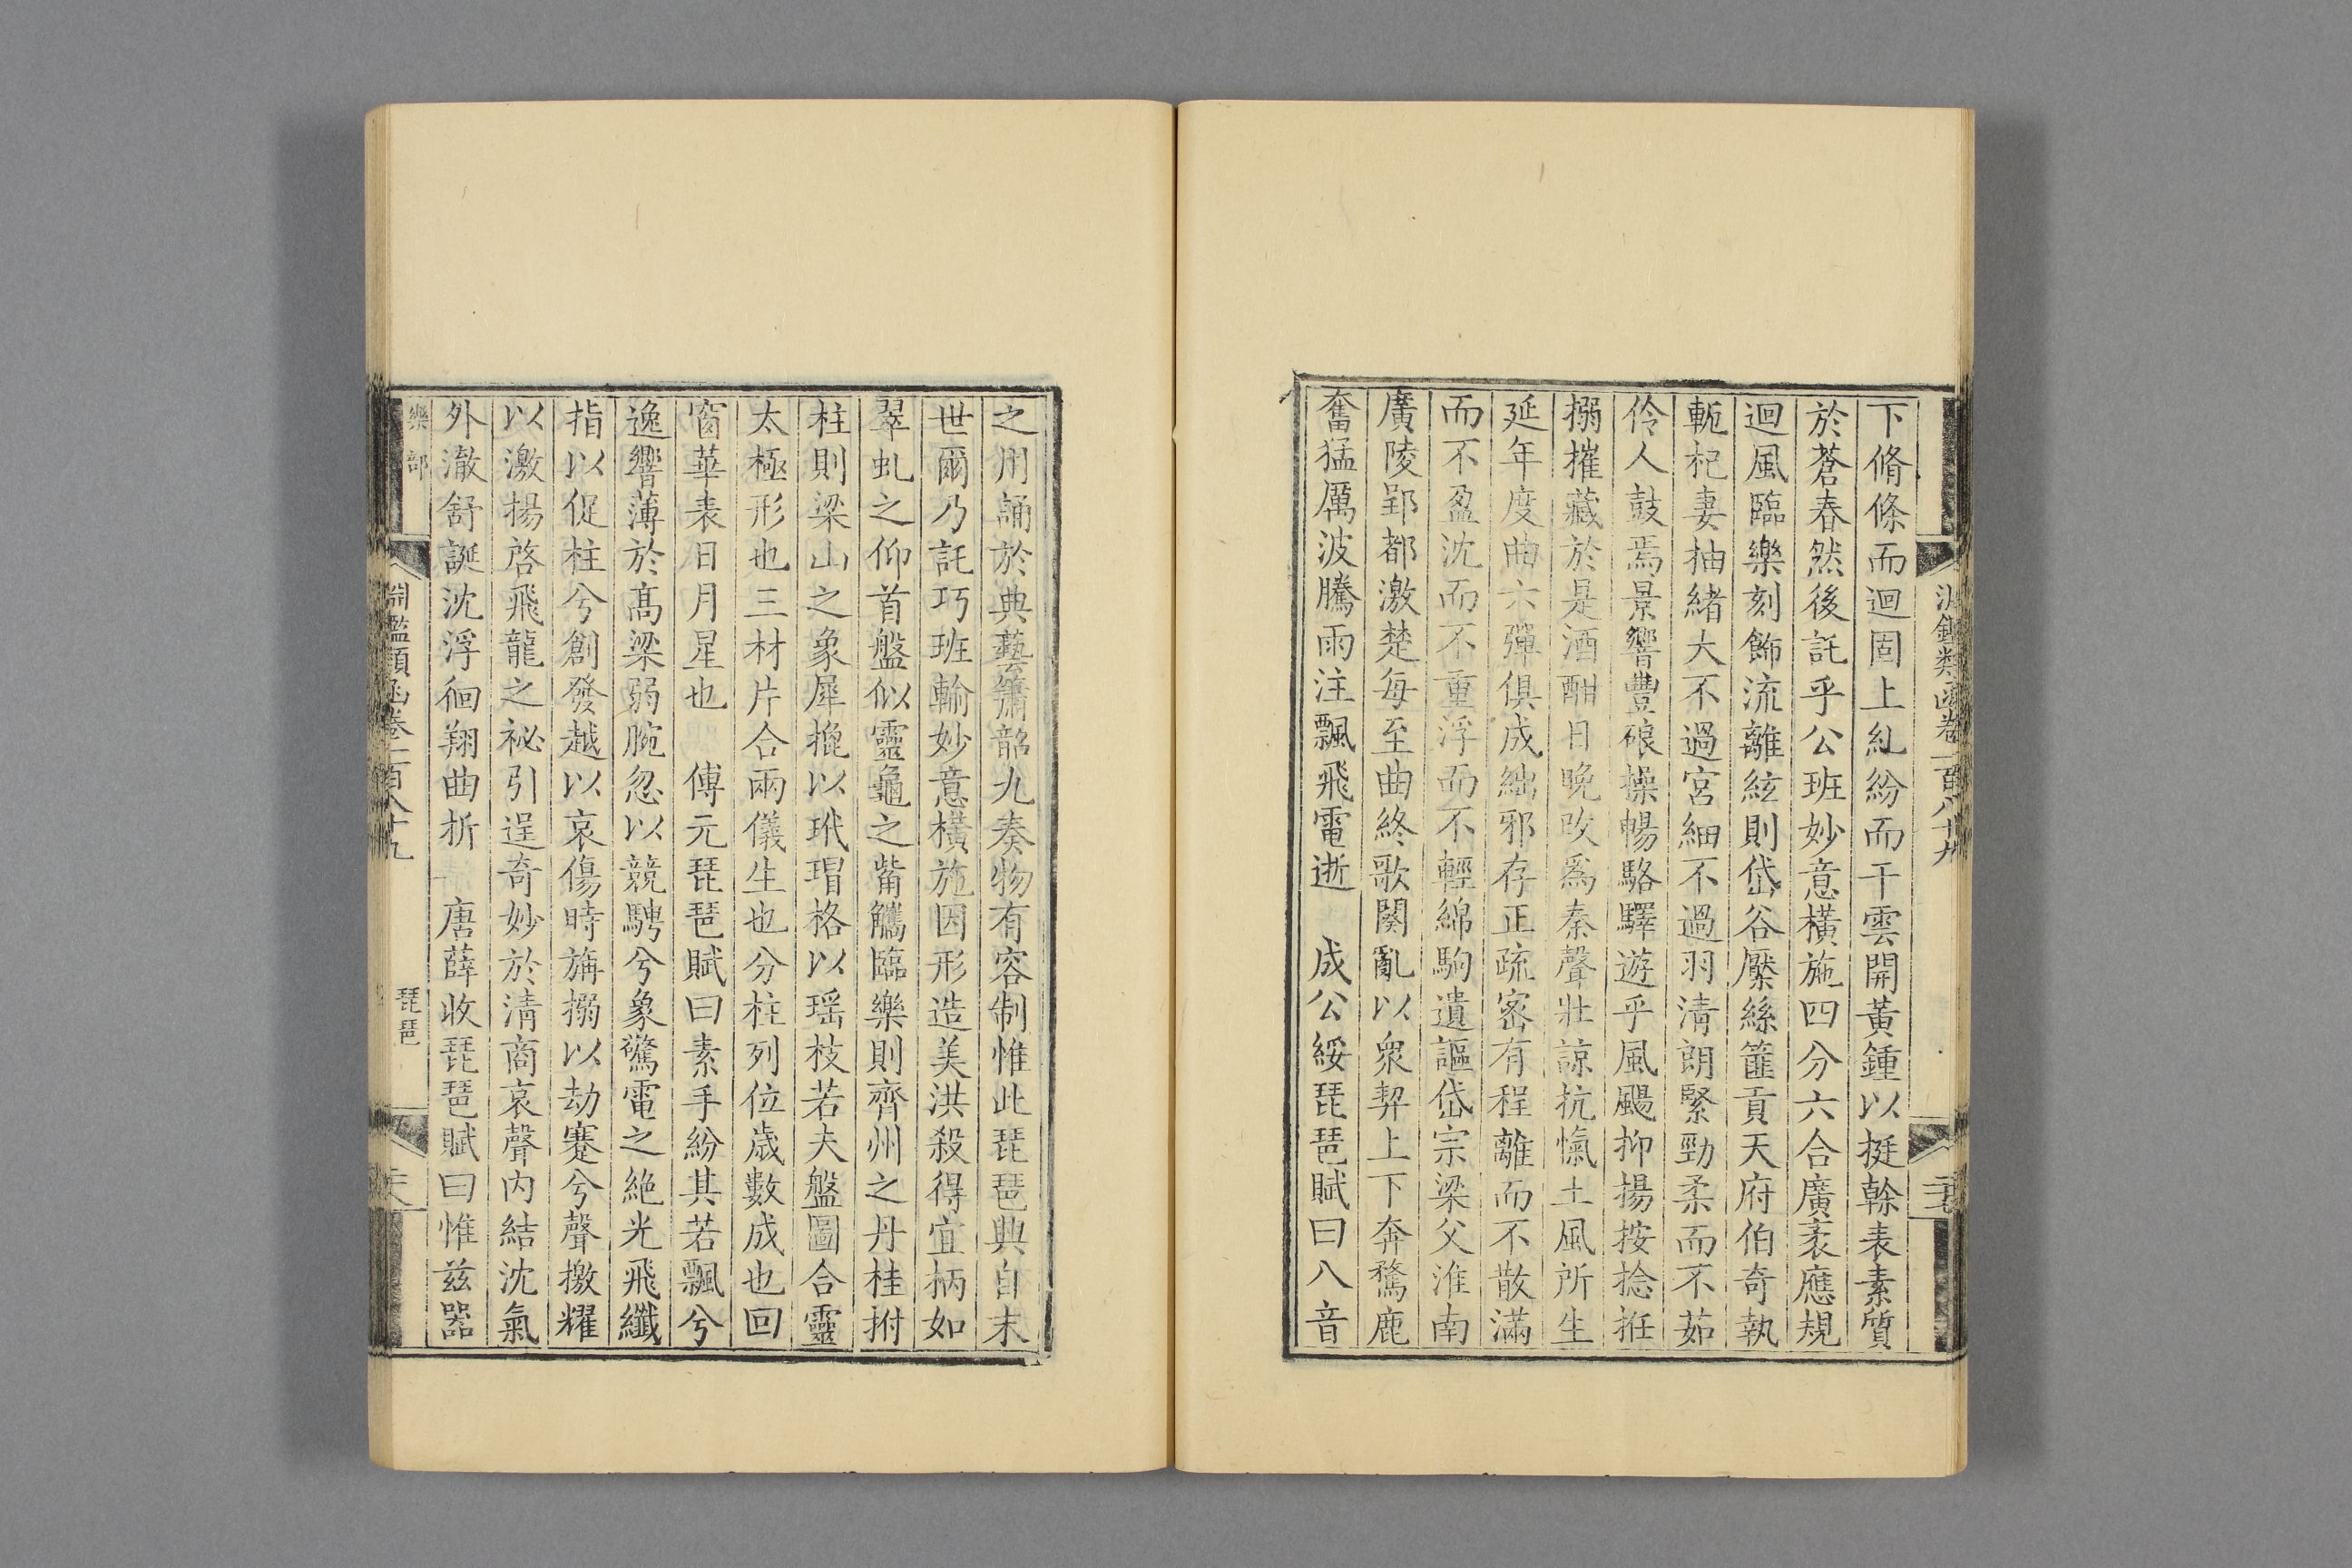 淵鑑類函卷一百八十九
下脩條而迴固上糺紛而干雲開黃鍾以挺幹表素質
於蒼春然後託乎公班妙意橫施四分六合廣袤應規
迴風臨樂刻飾流離絃則岱谷檿絲篚貢天府伯奇執
軛杞妻抽緒大不過宮細不過羽清朗緊勁柔而不茹
伶人鼓焉景響豐硠操暢駱驛遊乎風颺抑揚按捻摧
搦摧藏於是酒酣日晚改爲秦聲壯諒抗愾土風所生
延年度曲六彈俱成絀邪存正疏密有程離而不散滿
而不盈沈而不重浮而不輕綿駒遺謳岱宗梁父淮南
廣陵郢都激楚每至曲終歌闋亂以衆契上下奔騖鹿
奮猛厲波騰雨注飄飛電逝 成公綏琵琶賦曰八音
之用誦於典藝簫韶九奏物有容制惟此琵琶興自末
世爾乃託巧班輸妙意橫施因形造美洪殺得宜柄如
翠虬之仰首盤似靈龜之觜觿臨樂則齊州之丹桂拊
柱則梁山之象犀㨪以玳瑁格以瑶枝若夫盤圖合靈
太極形也三材片合兩儀生也分柱列位歲數成也回
窗華表日月星也 傅元琵琶賦曰素手紛其若飄兮
逸響薄於髙梁弱腕忽以競騁兮象驚電之絶光飛纖
指以促柱兮創發越以哀傷時旃搦以劫蹇兮聲撽耀
以激揚啓飛龍之祕引逞奇妙於清商哀聲内結沈氣
外澈舒誕沈浮徊翔曲折 唐薛收琵琶賦曰惟兹器
樂部
淵鑑類函卷一百八十九
琵琶